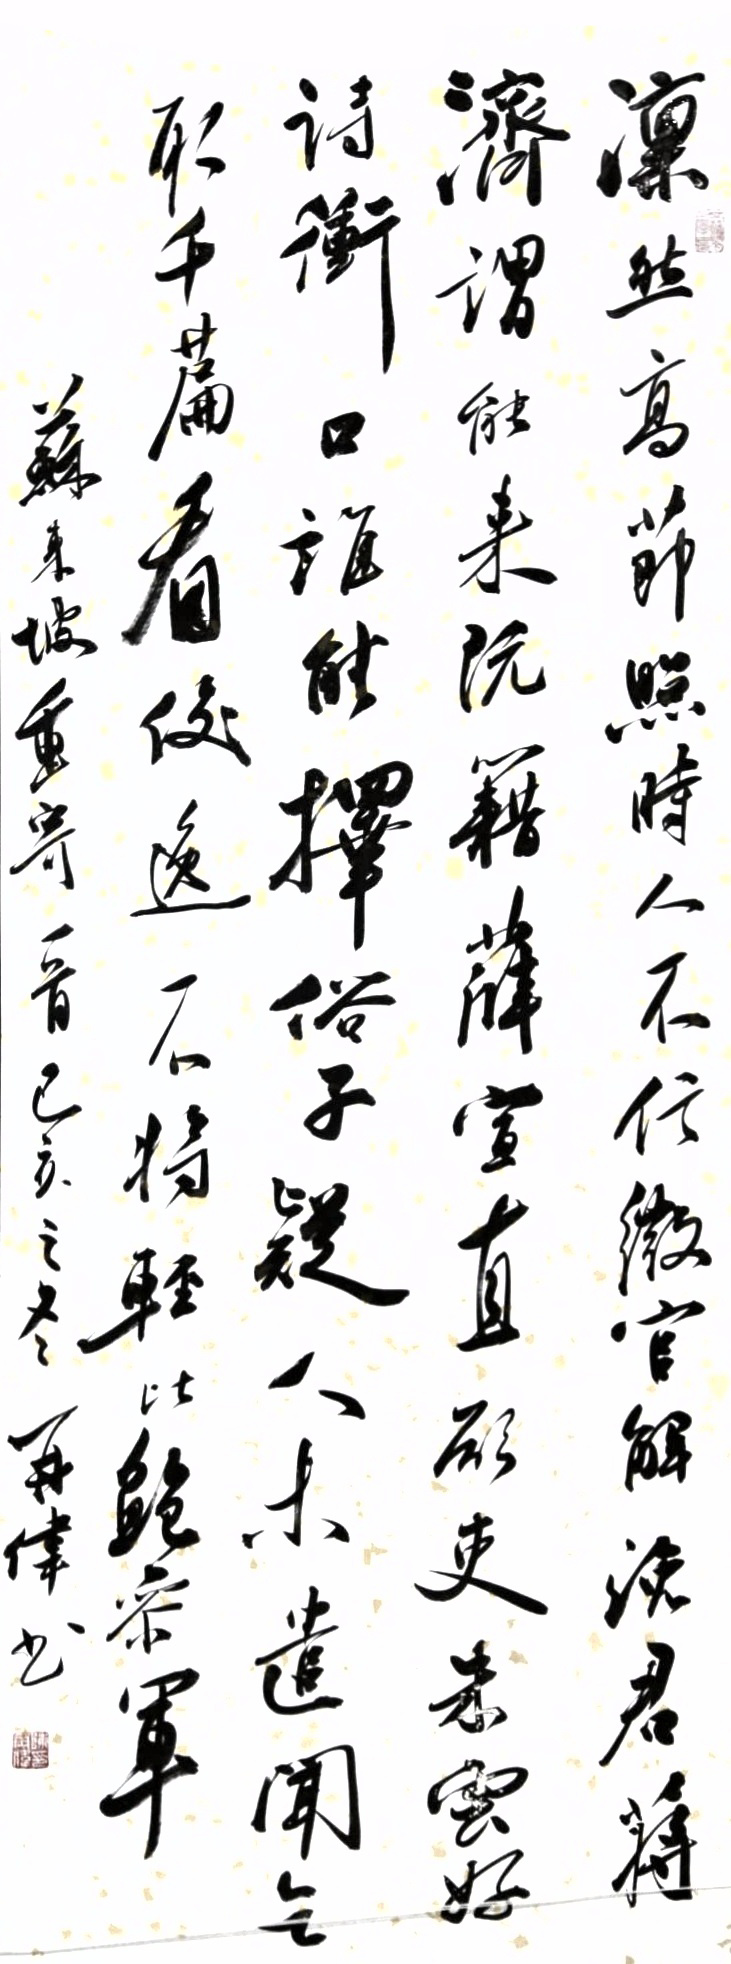 凜然高節照時人不信微官解浼君蔣
濟謂能來阮籍薛宣直欲吏朱雲好
詩衝口誰能擇俗子疑人未遣聞乞
取千篇看俊逸不將輕比鮑參軍
蘇東坡重寄一首己亥之冬 再偉书